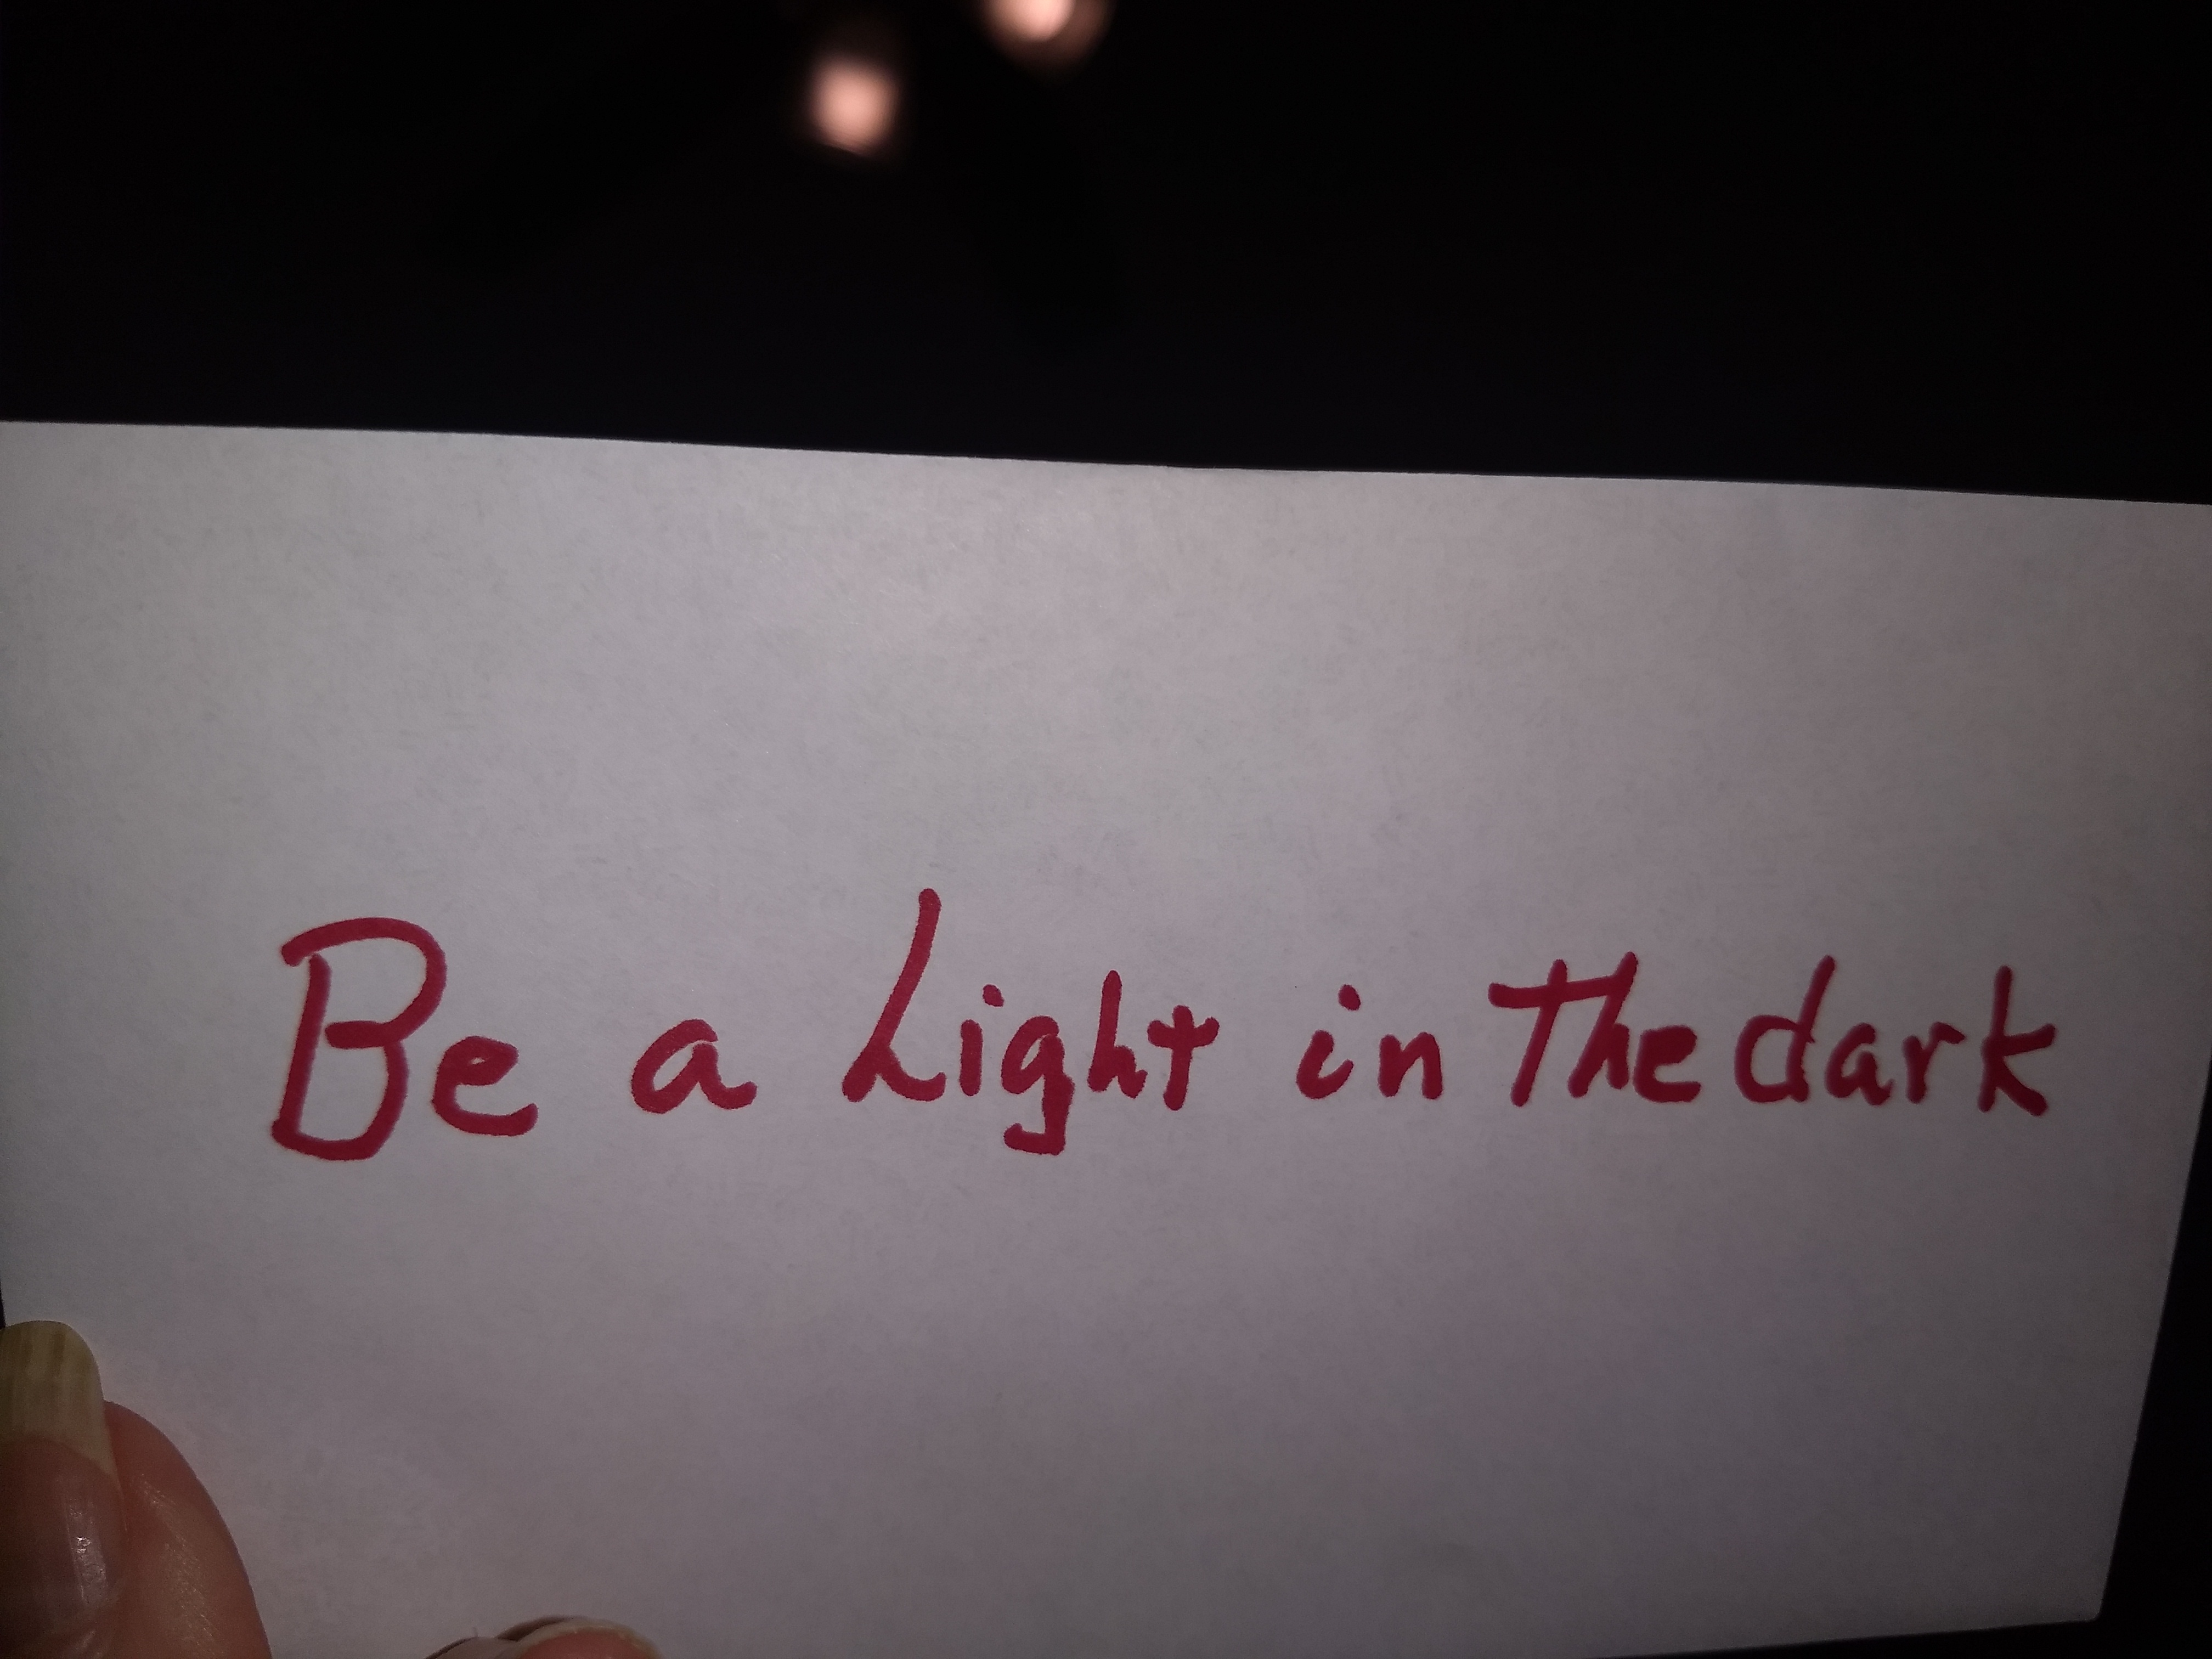 Be a Light in The dark